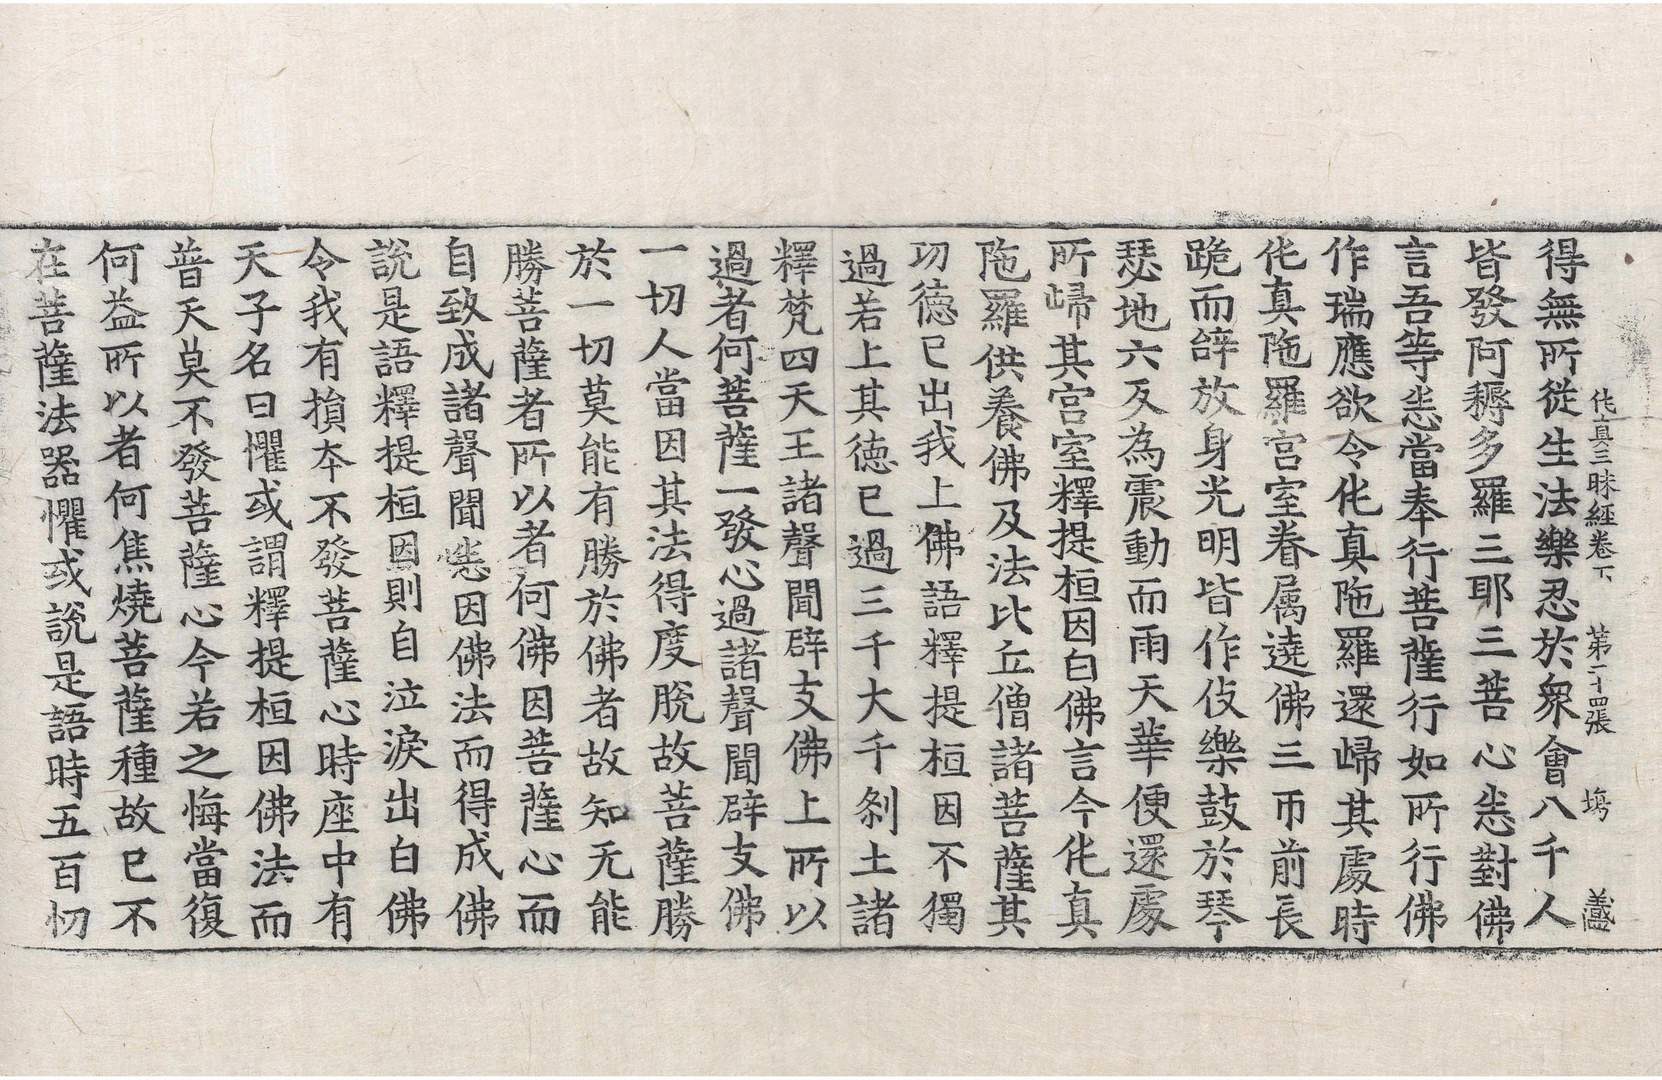 伅真三昧経卷下 第二十四張 塲
得無所從生法樂忍於衆會八千人
皆發阿耨多羅三耶三菩心恙對佛
言吾等恙當奉行菩薩行如所行佛
作瑞應欲令伅真陁羅還歸其處時
伅真陁羅宮室眷属遶佛三帀前長
跪而辤放身光明皆作伎樂鼓於琴
瑟地六反為震動而雨天華便還處
所歸其宮室釋提桓因白佛言今伅真
陁羅供養佛及法比丘僧諸菩薩其
功德已出我上佛語釋提桓因不獨
過若上其德已過三千大千剎土諸
釋梵四天王諸聲聞辟支佛上所以
過者何菩薩一發心過諸聲聞辟支佛
一切人當因其法得度脫故菩薩勝
於一切莫能有勝於佛者故知无能
勝菩薩者所以者何佛因菩薩心而
自致成諸聲聞恙因佛法而得成佛
說是語釋提桓因則自泣淚出白佛
令我有損夲不發菩薩心時座中有
天子名曰懼或謂釋提桓因佛法而
普天莫不發菩薩心今若之悔當復
何益所以者何焦燒菩薩種故已不
在菩薩法器懼或說是語時五百忉